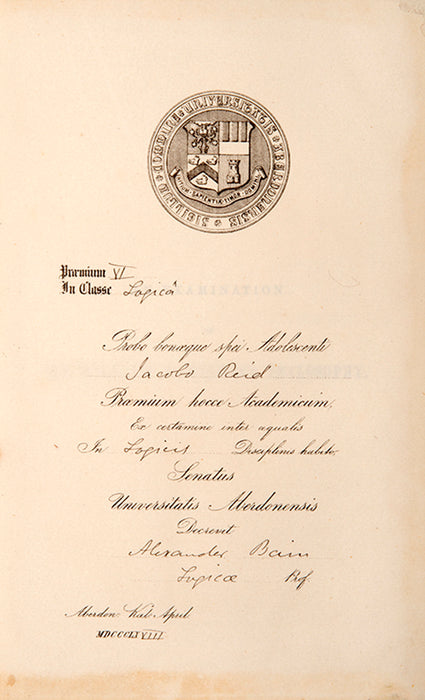 SIGILLUM COMMUNE UNIVERSITATIS ABERDONENSIS
INITIUM SAPIENTIÆ TIMOR DOMINI
Præmium VI
In Classe Logicâ
AMINATION
Probo bonæque spei Adolescenti
Jacobo Reid
Præmium hocce Academicum,
Ex certamine inter æquales
In Logicis Disciplinis habito,
Senatus
Universitatis Aberdonensis
Decrevit
Alexander Bain
Logicæ Prof.
Aberdon: Kal: April
MDCCCLXVIII.